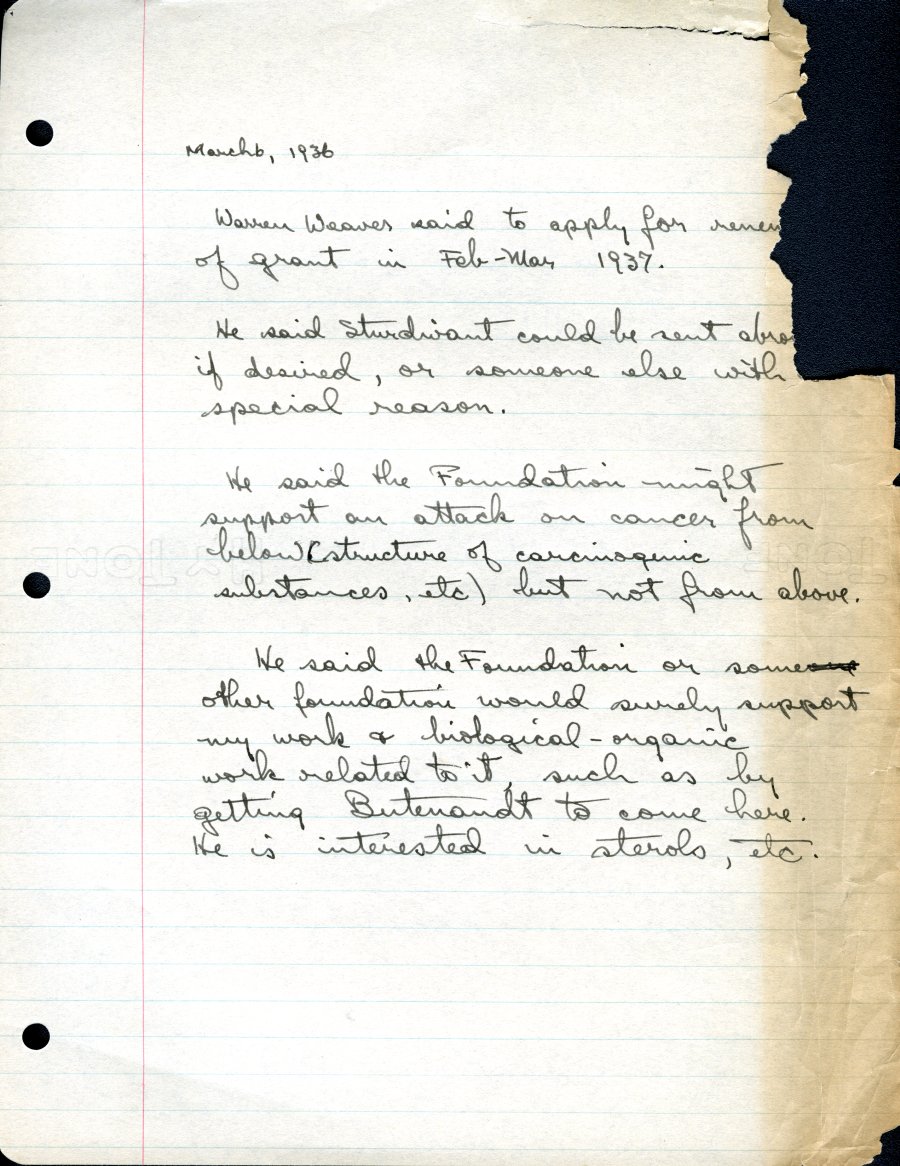 March 6, 1936
Warren Weaver said to apply for renew
of grant in Feb-Mar 1937.
He said Sturdivant could be sent abro
if desired, or someone else with
special reason.
We said the Foundation might
support an attack on cancer from
below (structure of carcinogenic
substances, etc) but not from above.
We said the Foundation or some
other foundation would surely support
my work & biological-organic
work related to it, such as by
getting Butenandt to come here.
He is interested in sterols, etc.